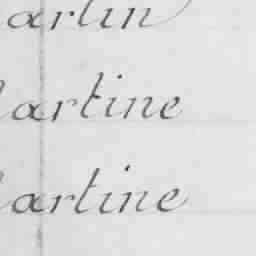 artin
artine
artine